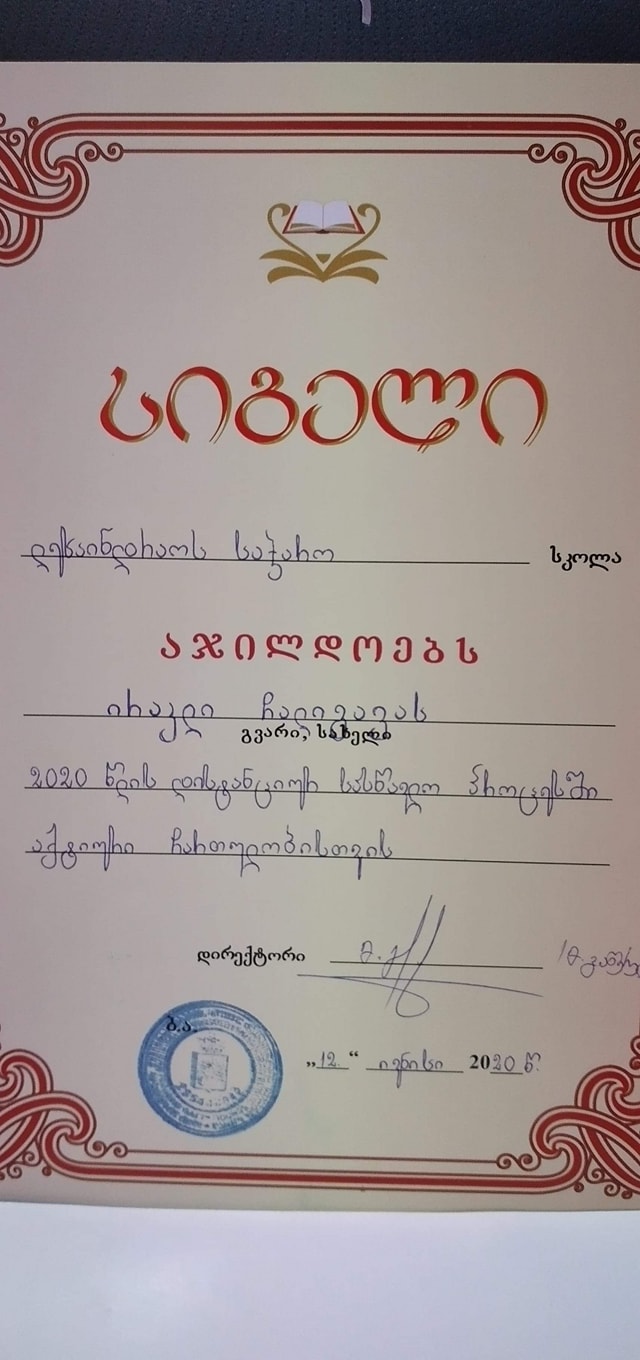 სიგელი
საჯარო სკოლა
აჯილდოებს
ირაკლი
გვარი, სახელი
2020 წლის დისტანციურ სასწავლო პროცესში
აქტიური ჩართულობისთვის
დირექტორი
ბ.ა.
„12“ ივნისი 2020 წ.